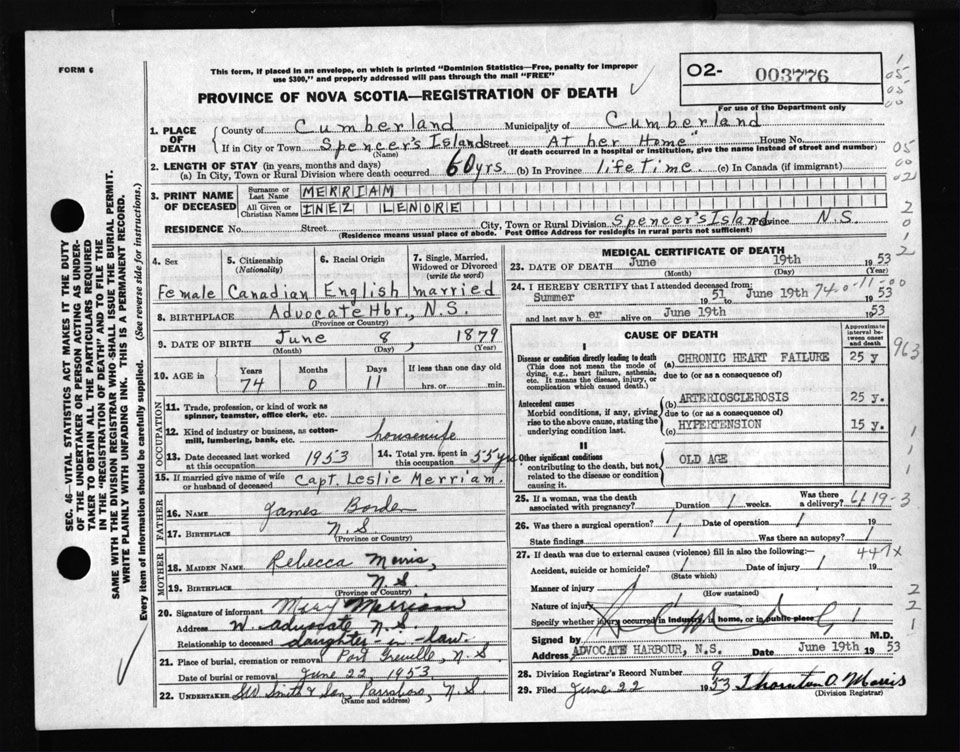 FORM 6
This form, if placed in an envelope, on which is printed "Dominion Statistics—Free, penalty for improper
use $300," and properly addressed will pass through the mail "FREE"
02- 003776
For use of the Department only
PROVINCE OF NOVA SCOTIA—REGISTRATION OF DEATH
1. PLACE OF DEATH
County of Cumberland Municipality of Cumberland
If in City or Town Spencer's Island Street "At her Home" House No.
(Name) (If death occurred in a hospital or institution, give the name instead of street and number)
2. LENGTH OF STAY (in years, months and days)
(a) In City, Town or Rural Division where death occurred 60 yrs. (b) In Province lifeTime (c) In Canada (if immigrant)
3. PRINT NAME OF DECEASED
Surname or Last Name MERRIAM
All Given or Christian Names INEZ LENORE
RESIDENCE No. Street City, Town or Rural Division Spencer's Island Province N.S.
(Residence means usual place of abode. Post Office Address for residents in rural parts not sufficient)
4. Sex Female
5. Citizenship (Nationality) Canadian
6. Racial Origin English
7. Single, Married, Widowed or Divorced (write the word) married
8. BIRTHPLACE Advocate Hbr., N.S.
(Province or Country)
9. DATE OF BIRTH June 8, 1879
(Month) (Day) (Year)
10. AGE IN Years 74 Months 0 Days 11 If less than one day old hrs. or min.
OCCUPATION
11. Trade, profession, or kind of work as
spinner, teamster, office clerk, etc.
12. Kind of industry or business, as cotton-
mill, lumbering, bank, etc. housewife
13. Date deceased last worked at this occupation 1953
14. Total yrs. spent in this occupation 55 yrs
15. If married give name of wife
or husband of deceased Capt. Leslie Merriam.
FATHER
16. NAME James Borden
17. BIRTHPLACE N.S.
(Province or Country)
MOTHER
18. MAIDEN NAME Rebecca Morris,
19. BIRTHPLACE N S
(Province or Country)
20. Signature of informant Mary Merriam
Address W. Advocate N.S.
Relationship to deceased daughter-in-law.
21. Place of burial, cremation or removal Port Greville, N.S.
Date of burial or removal June 22, 1953
22. UNDERTAKER Smith & Son, Parrsboro, N.S.
(Name and address)
MEDICAL CERTIFICATE OF DEATH
23. DATE OF DEATH June 19th 1953
(Month) (Day) (Year)
24. I HEREBY CERTIFY that I attended deceased from:
Summer 19 51 to June 19th 1953
and last saw h er alive on June 19th 1953
CAUSE OF DEATH
Approximate interval between onset and death
I
Disease or condition directly leading to death
(This does not mean the mode of
dying, e.g., heart failure, asthenia,
etc. It means the disease, injury, or
complication which caused death.)
(a) CHRONIC HEART FAILURE 25 y
due to (or as a consequence of)
Antecedent causes
Morbid conditions, if any, giving
rise to the above cause, stating the
underlying condition last.
(b) ARTERIOSCLEROSIS 25 y.
due to (or as a consequence of)
(c) HYPERTENSION 15 y.
II
Other significant conditions
contributing to the death, but not
related to the disease or condition
causing it.
OLD AGE
25. If a woman, was the death
associated with pregnancy? Duration weeks. Was there a delivery?
26. Was there a surgical operation? Date of operation 19
State findings Was there an autopsy?
27. If death was due to external causes (violence) fill in also the following:—
Accident, suicide or homicide? Date of injury 19
(State which)
Manner of injury
(How sustained)
Nature of injury
Specify whether injury occurred in industry, in home, or in public place
Signed by M.D.
Address ADVOCATE HARBOUR, N.S. June 19th 1953
28. Division Registrar's Record Number 9
29. Filed June 22 1953 Thornton O. Morris
(Division Registrar)
SEC. 46—VITAL STATISTICS ACT MAKES IT THE DUTY
OF THE UNDERTAKER OR PERSON ACTING AS UNDER-
TAKER TO OBTAIN ALL THE PARTICULARS REQUIRED
IN THE "REGISTRATION OF DEATH" AND TO FILE THE
SAME WITH THE DIVISION REGISTRAR WHO SHALL ISSUE THE BURIAL PERMIT.
WRITE PLAINLY WITH UNFADING INK. THIS IS A PERMANENT RECORD.
Every item of information should be carefully supplied. (See reverse side for instructions.)
740-11-00
963
6419-3
447x